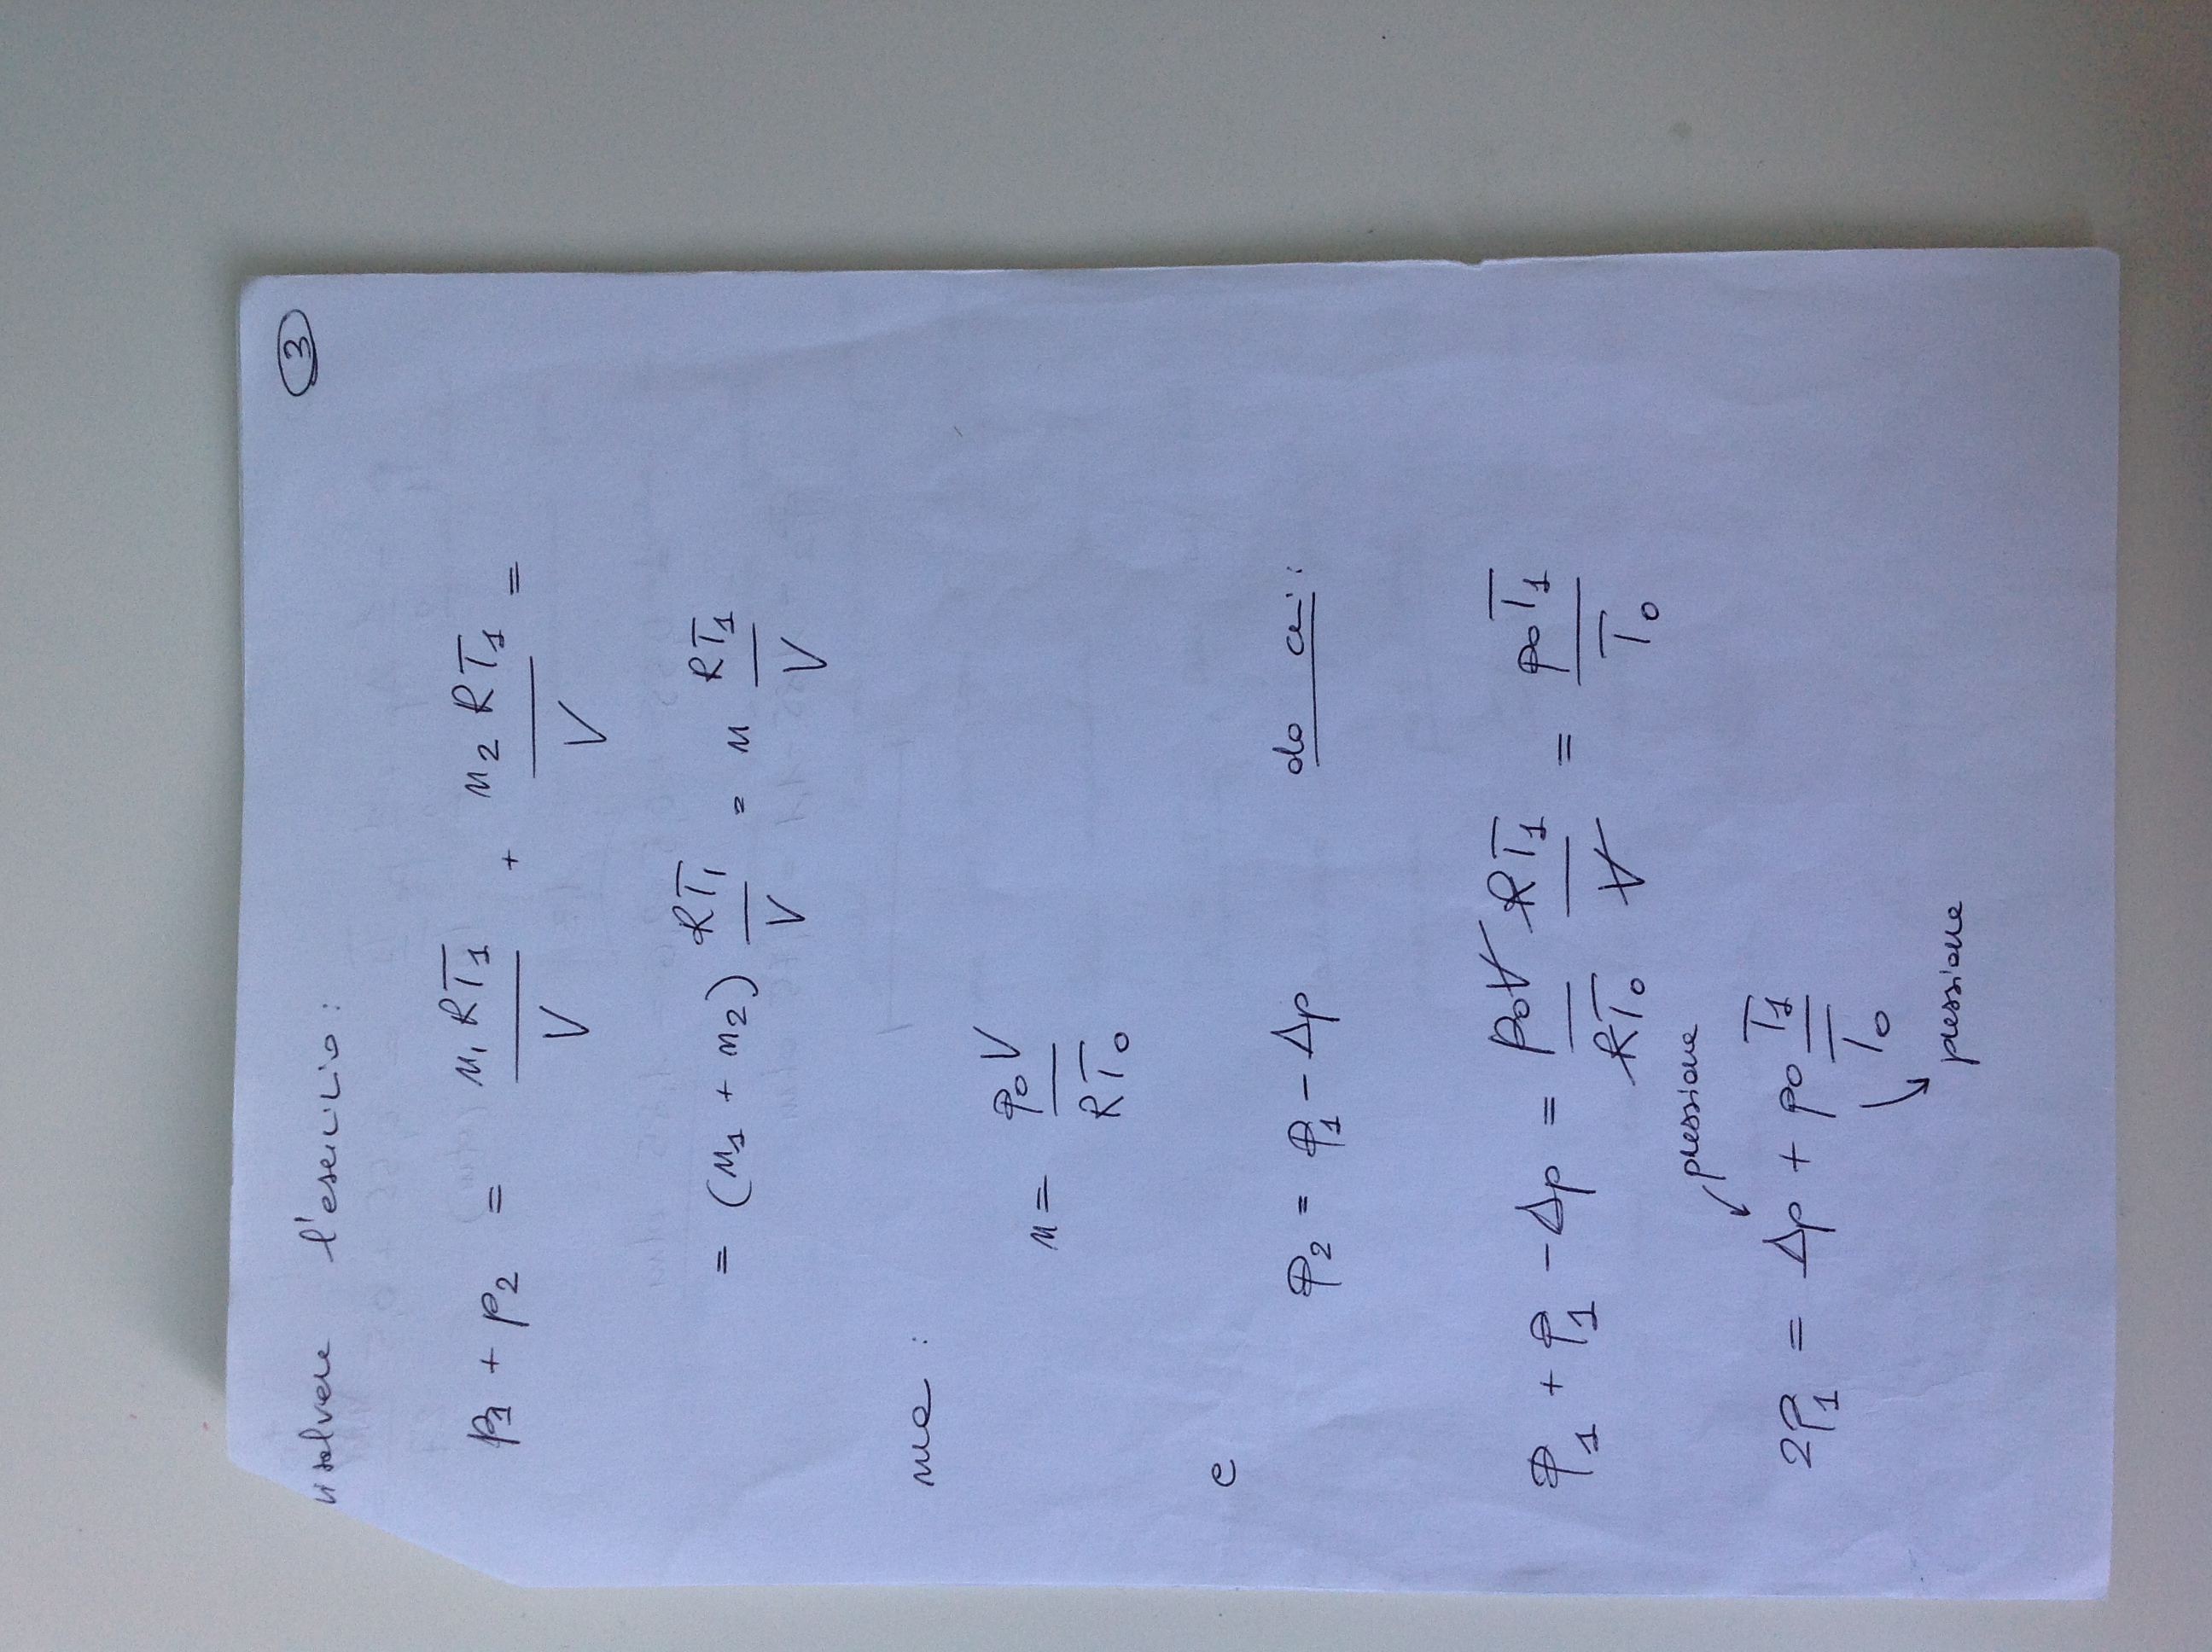 3
risolvere l'esercizio:
p₁ + p₂ = n₁RT₁/V + n₂RT₁/V =
= (n₁ + n₂) RT₁/V = n RT₁/V
ma:
n = p₀V/RT₀
e
p₂ = p₁ - Δp da cui:
p₁ + p₁ - Δp = p₀V/RT₀ RT₁/V = p₀T₁/T₀
pressione
2p₁ = Δp + p₀ T₁/T₀
pressione